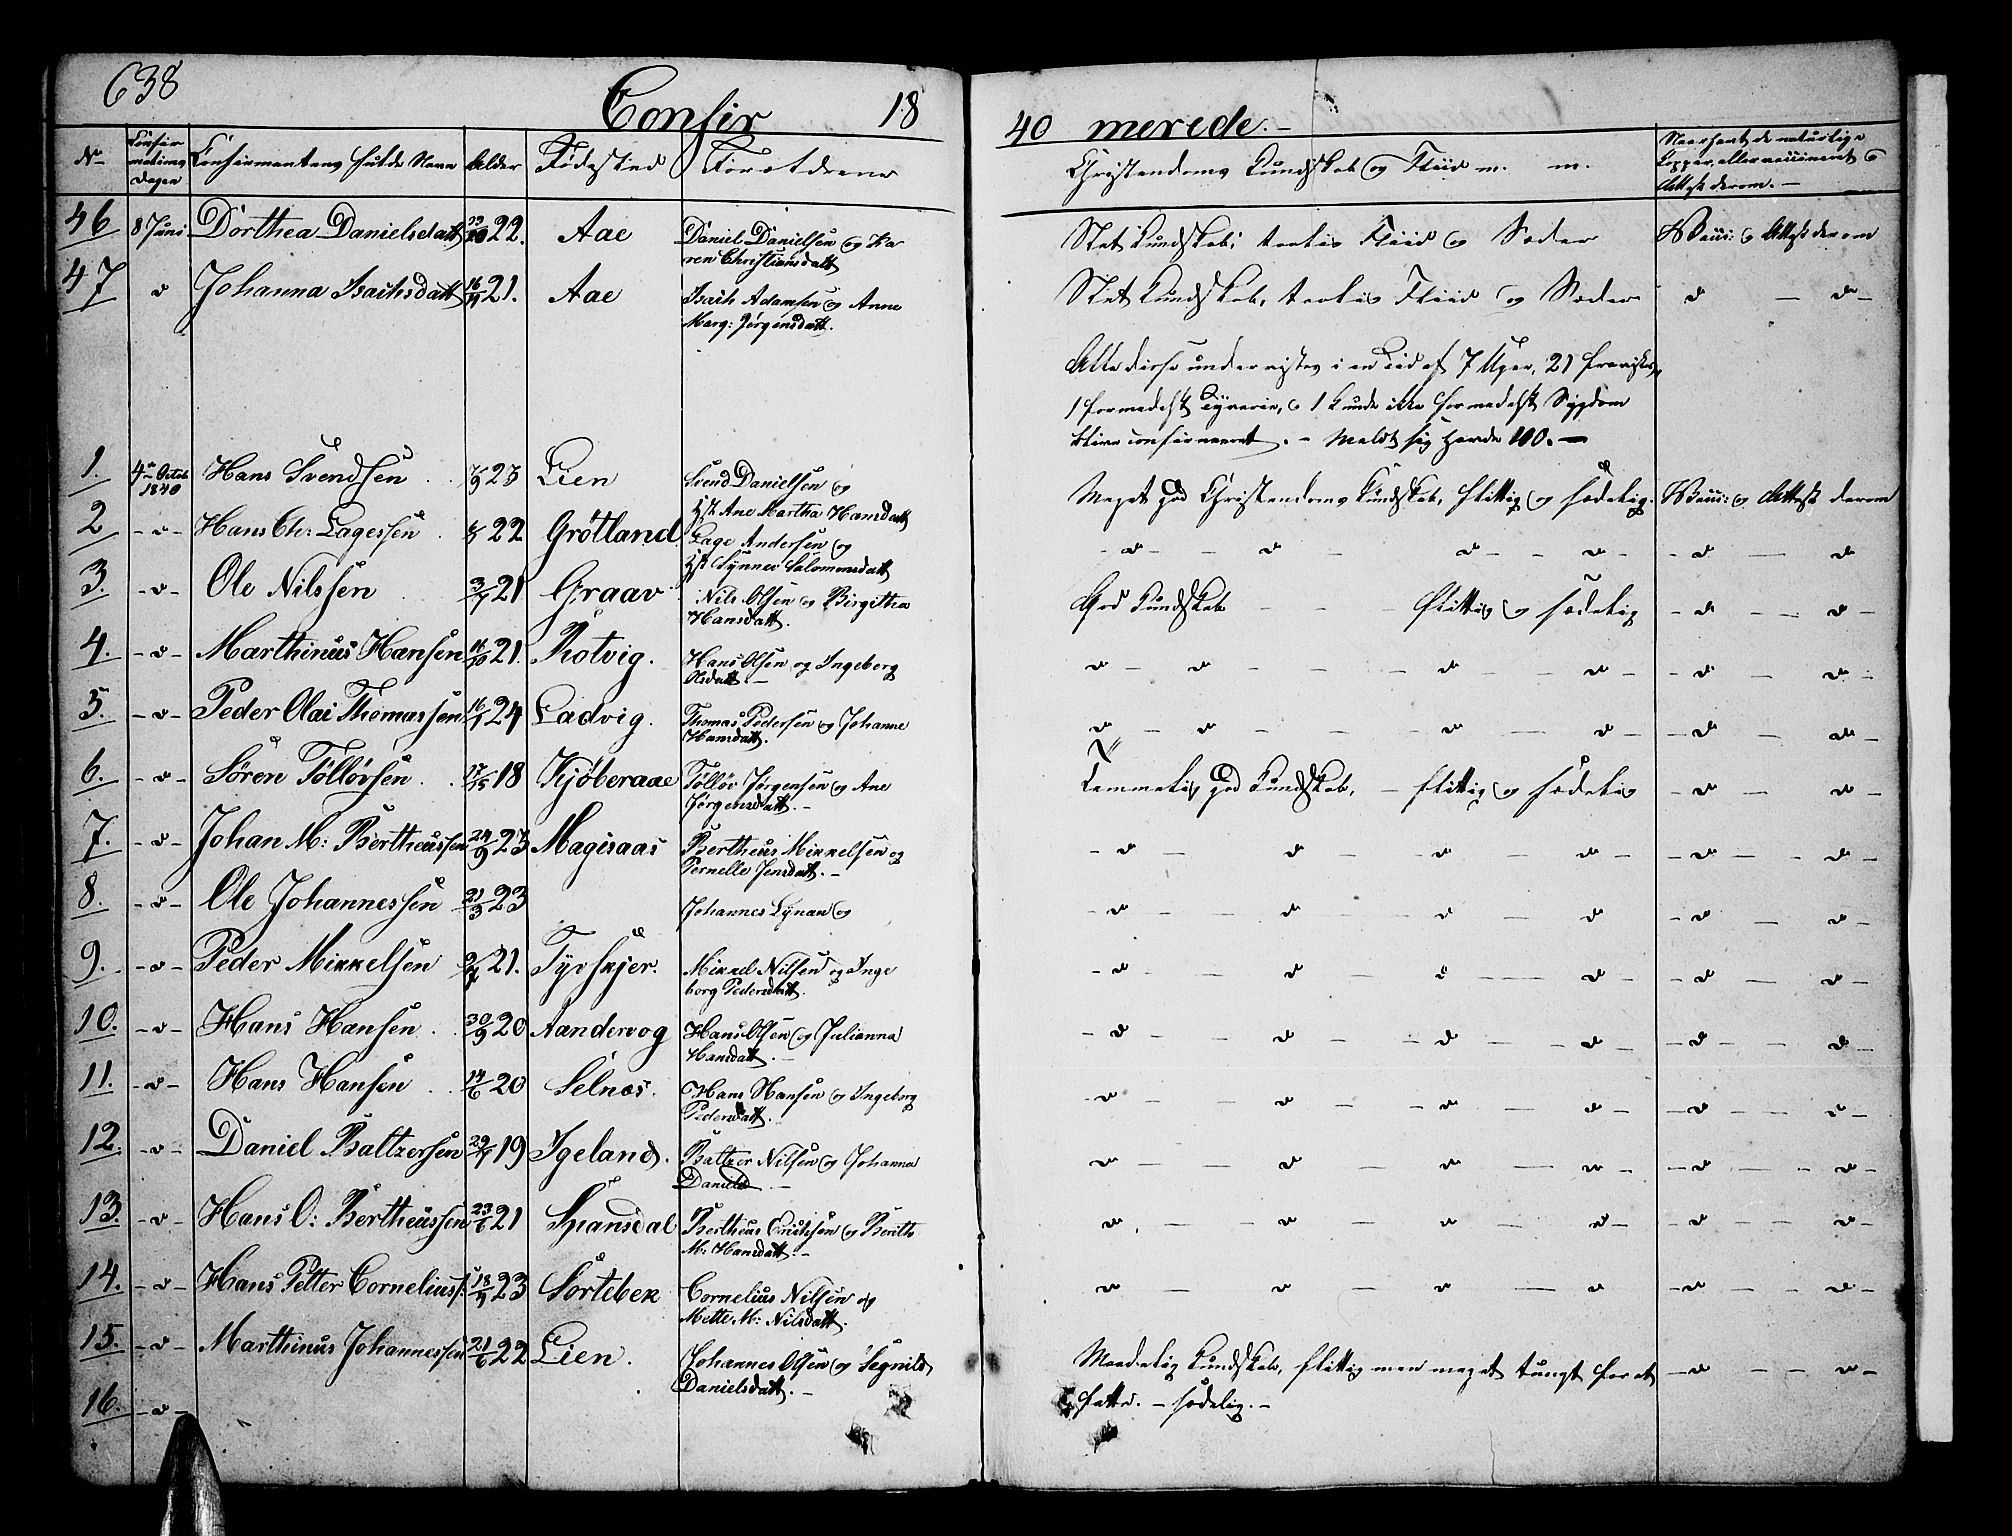 638
Confir 18
40 merede. —
No Confirmations Dagen Confirmantens fulde Navn Alder Fødested Forældrene
Christendoms Kundskab og Fliid m. m.
Naar havt de naturlige Kopper, eller vaccineret & Attest derom. —
46 8 Juni Dorthea Danielsdatt 22. Aae Daniel Danielsen og Ka
ren Christiansdatt
Slet Kundskab; Fliid og Sæder Vacc: & Attest derom
47 d Johanna Isachsdatt 21. Aae Isach Adamsen og Anne
Marg: Jørgensdatt.
Slet Kundskab, Fliid og Sæder d — d —
Alle disse underviistes i en Tiid af 7 Uger, 21
1 formedelst Tyverie, & 1 kunde ikke formedelst Sygdom
blive confirmeret. — Meldt sig havde 100. —
1. 4de Octob 1840 Hans Svendsen 23 Lien Svend Danielsen og
Hst Ane Martha Hansdatt
Meget god Christendoms Kundskab, flittig og sædelig. Vacc: & Attest derom
2 — d — Hans Ch: Lagessen 22 Grötland Lage Andersen og
Hst Synnev Salomonsdatt
— d — — d — d — — d — — d — d
3. — d — Ole Nilssen 3/7 21 Graav Nils Olsen og Birgitha
Hansdatt.
God Kundskab — — flittig og sædelig — d — — d —
4. — d — Marthinus Hansen 14/10 21. Rotvig. Hans Olsen og Ingeborg
Olsdatt. —
d — d — — — d — d — — d — — d —
5. — d — Peder Olai Thomassen 16/1 24 Ladvig. Thomas Pedersen og Johanne
Hansdatt.
d — d — — — d — d — — d — — d —
6. — d — Sören Töllövsen 18 Kjöberaae Töllöv Jørgensen og Ane
Jørgensdatt. —
Temmelig god Kundskab, — flittig og sædelig — d — — d —
7. — d — Johan M: Bertheussen 24/9 23 Magisaas Bertheus Mikkelsen og
Pernelle Jensdatt. —
— d — d — d — d — — d — — d —
8. — d — Ole Johannessen 21/3 23 Johannes Lynan og
— d — d — d — d — d — d —
9. — d — Peder Mikkelsen 21. Tyvskjer. Mikkel Nilsen og Inge
borg Pedersdatt.
— d — d — d — d — — d — — d —
10. — d — Hans Hansen 30/9 20 Aandervog Hans Olsen og Julianna
Hansdatt. —
— d — d — d — d — — d — — d —
11. — d — Hans Hansen 14/6 20 Selnæs. Hans Hansen og Ingeborg
Pedersdatt.
— d — d — d — d — — d — — d —
12. — d — Daniel Baltzersen 19 Igeland. Baltzer Nilsen og Johanna
Daniels —
d — d — d — d — — d — — d —
13. — d — Hans O: Bertheussen 23/6 21 Spansdal Bertheus Erichsen og Berith
M: Hansdatt. —
d — d — d — d — — d — — d —
14. — d — Hans Petter Corneliuss: 23 Sortebek Cornelius Nilsen og
Mette M: Nilsdatt.
d — d — d — d — — d — — d —
15. — d — Marthinus Johannessen 21/6 22 Lien. Johannes Olsen og Segnild
Danielsdatt. —
Maadelig Kundskab, flittig men meget tungt for at — d — — d —
fatte. — sædelig. —
16. — d —